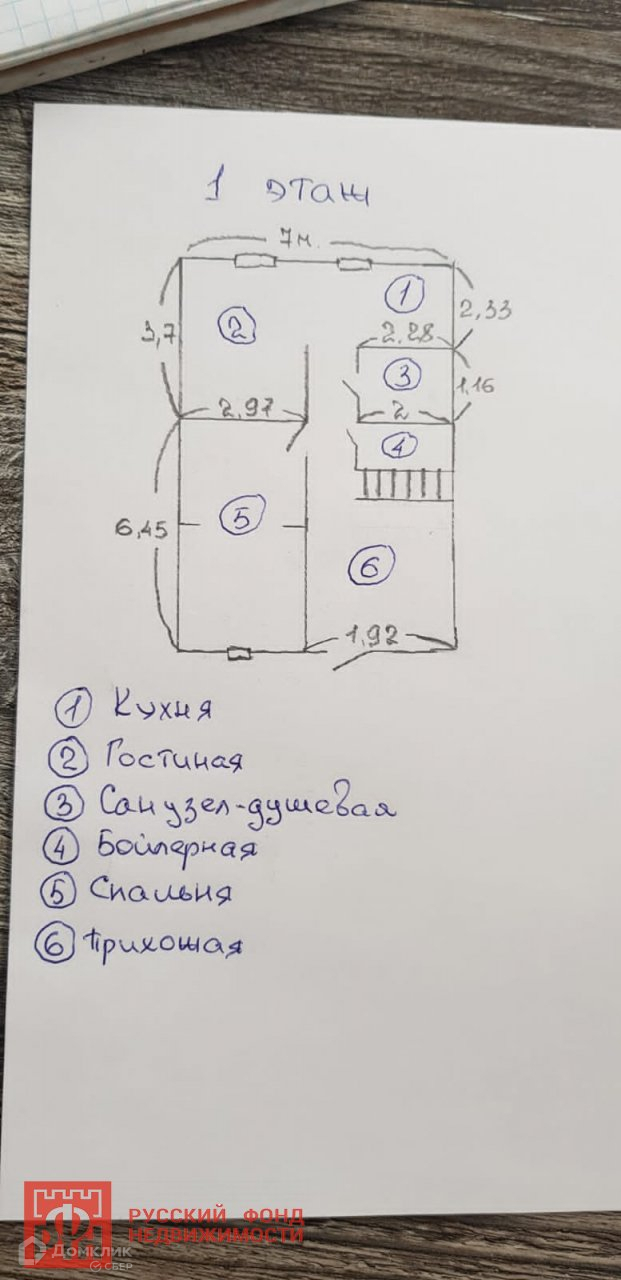 1 этаж
7м.
1
2,33
2
3,7
2,28
3
1,16
2,97
2
4
6,45
5
6
1,92
1 Кухня
2 Гостиная
3 Санузел-душевая
4 Бойлерная
5 Спальня
6 Прихожая
РУССКИЙ ФОНД
НЕДВИЖИМОСТИ
ДОМКЛИК
СБЕР